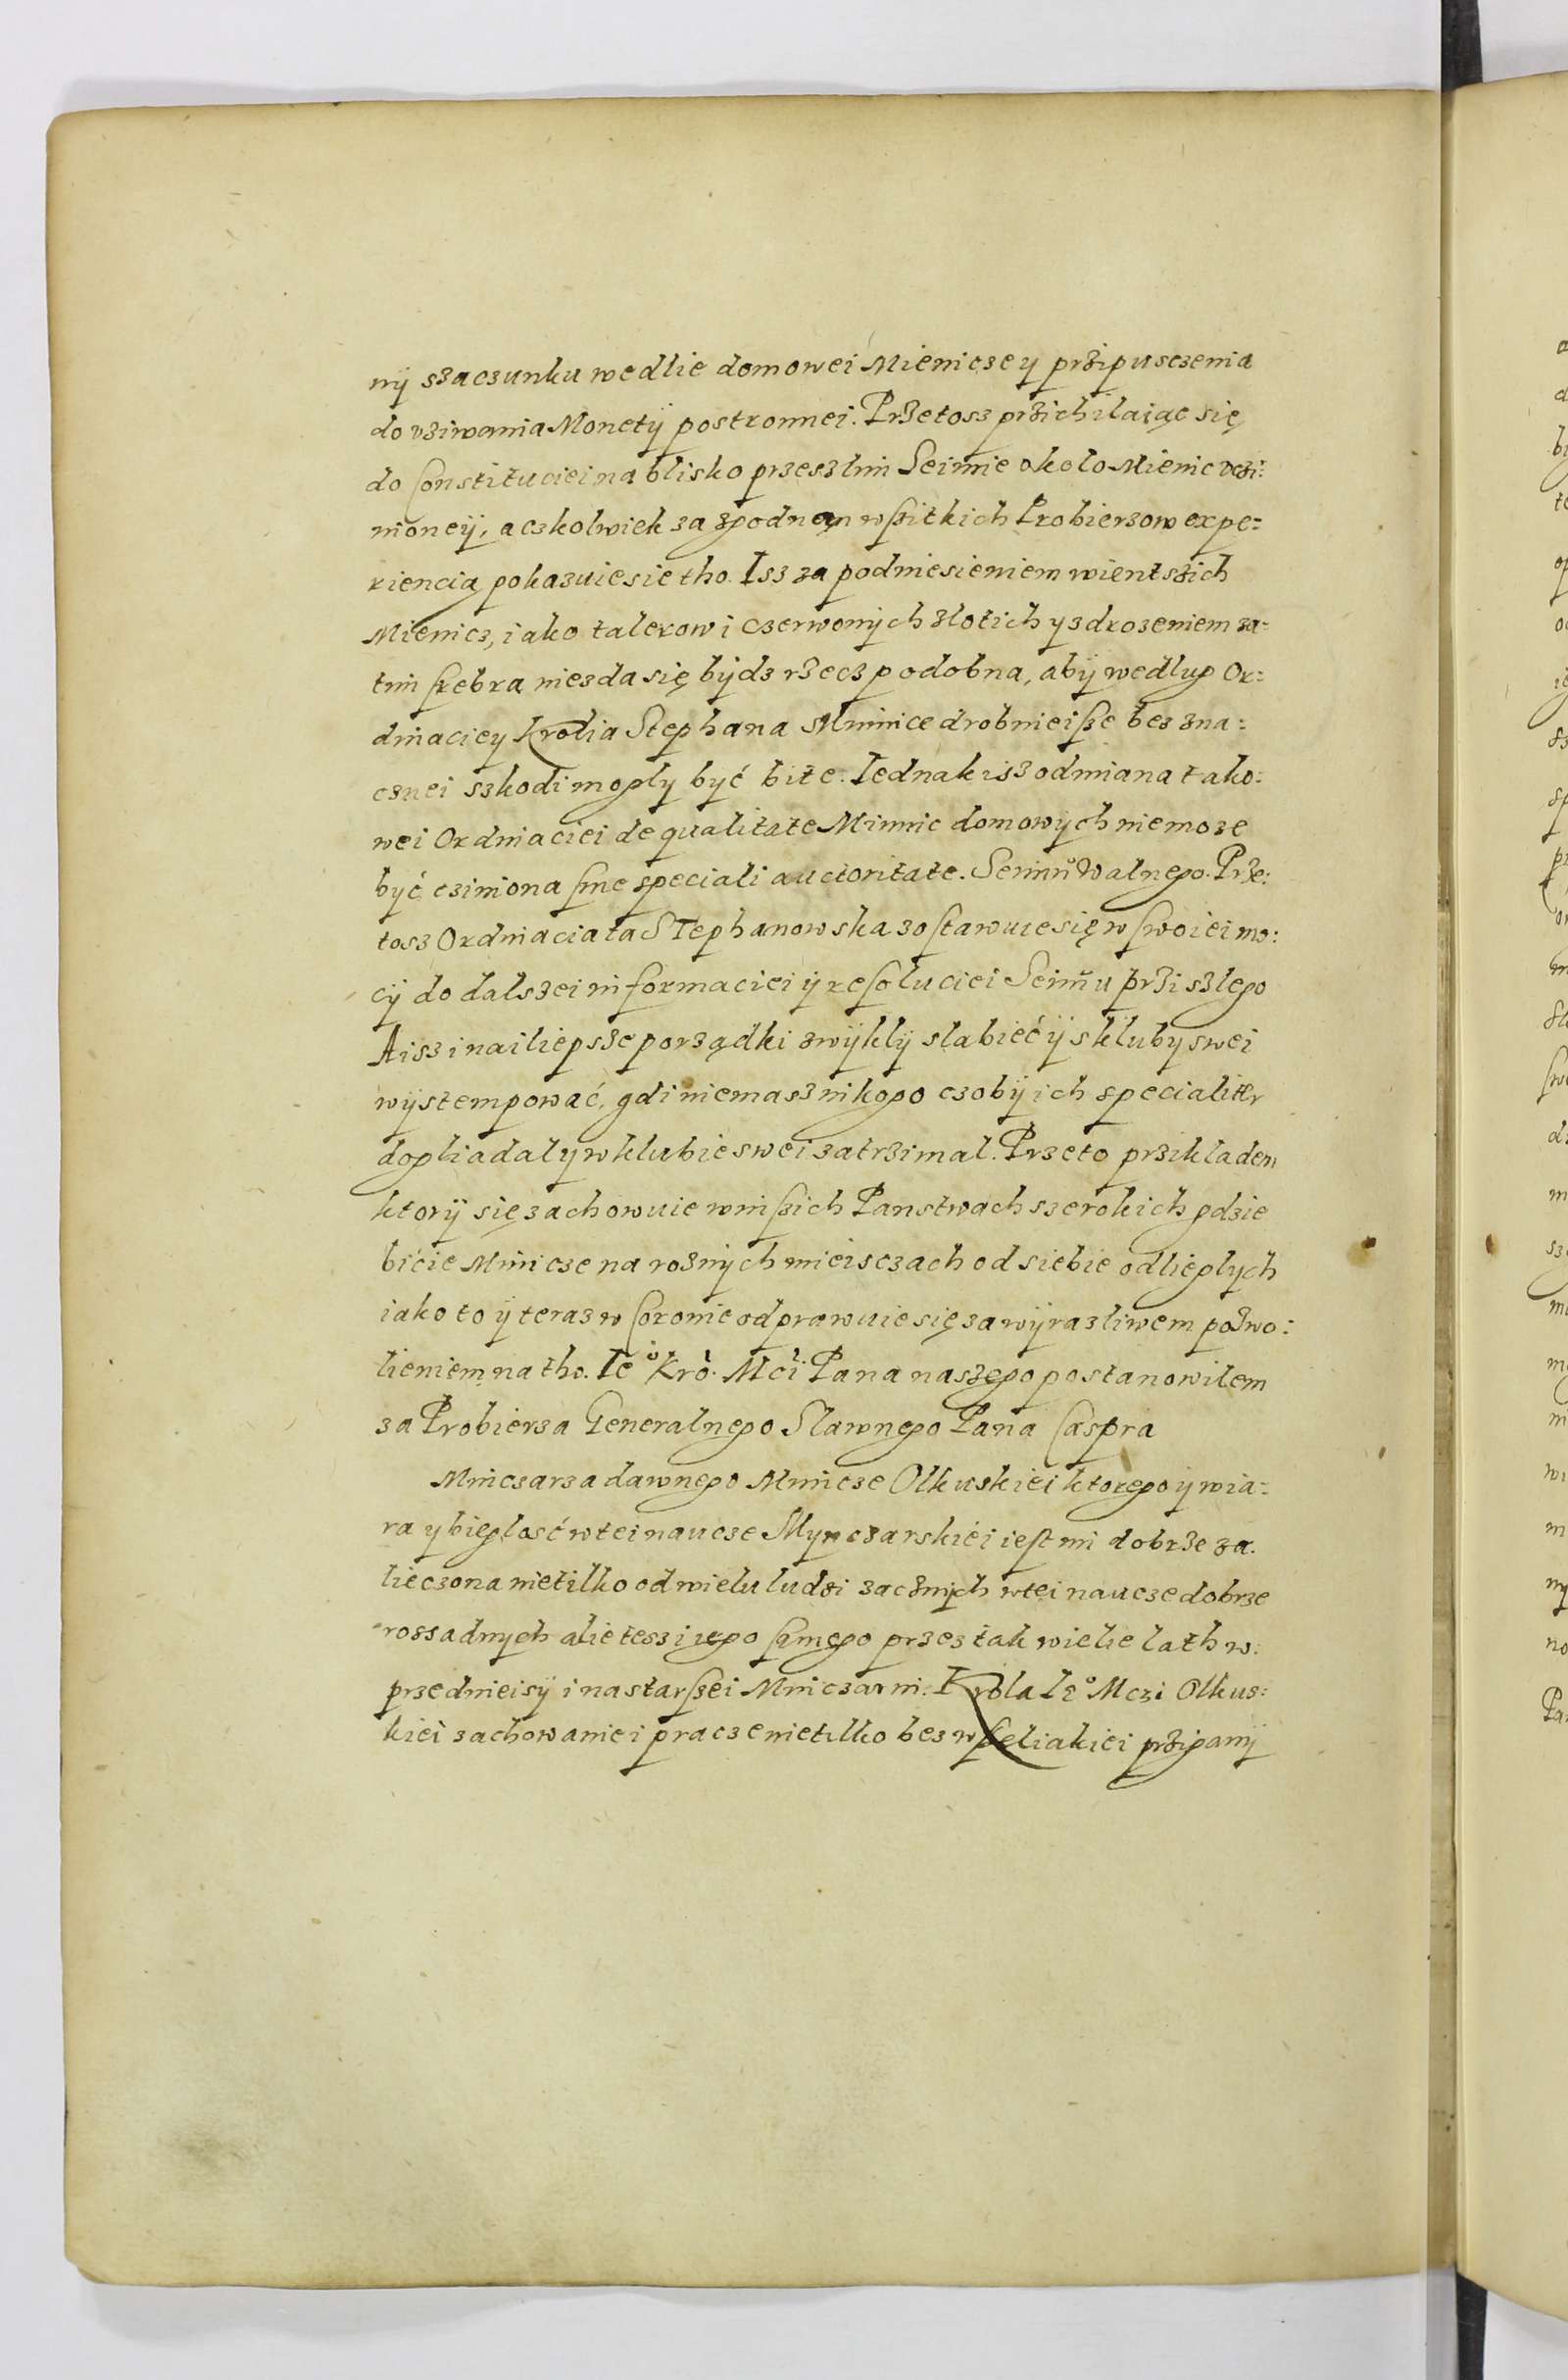 nÿ szaczunku wedlie domowei Mienicze y przipusczenia
do vziwania Monetÿ postronnei. Przetosz przichilaiąc się
do Constituciei na blisko przeszlim Seimie okolo Mienic vczi:
nioneÿ, aczkolwiek za zgodnem wszitkich Probierzow expe:
riencią pokazuie sie tho. Isz za podniesieniem wientszich
Mienicz, iako talerow i czerwonÿch zlotich y zdrozeniem za:
tim srebra niezda się bÿdz rzecz podobna, abÿ wedlug Or:
dinaciey Krolia Stephana Minnice drobnieisze bez zna:
cznei szkodi mogly być bite. Iednak isz odmiana tako:
wei Ordinaciei de qualitate Minnic domowÿch niemoze
być cziniona sine speciali auctoritate. Seimu Walnego. Prze:
tosz Ordinacia ta Stephanowska zostawuie się w swoiei mo:
cÿ do dalszei informaciei ÿ resoluciei Seimu przi szlego
A isz i nailiepsze porządki zwÿklÿ slabieć ÿ sklubÿ swei
wÿstempować, gdi niemasz nikogo czobÿ ich specialiter
dogliadal y w klubie swei zatrzimal. Przeto przikladem
ktorÿ się zachowuie w inszich Panstwach szerokich gdzie
bicie Minicze na roznÿch mieisczach od siebie odlieglych
iako to ÿ teraz w Coronie odprawuie się za wÿrazliwem pozwo:
lieniem na tho. Ie° Krò. Mci Pana naszego postanowilem
za Probierza Generalnego Slawnego Pana Caspra
Minczarza dawnego Minicze Olkuskiei ktorego ÿ wia:
ra y bieglosć w tei naucze Mynczarskiei iest mi dobrze za.
lieczona nietilko od wielu ludzi zacznÿch w tei naucze dobrze
rossadnych alie tesz i iego samego przes tak wielie lath w.
przednieisÿ i na starszei Miniczarni. Krola Ie° Mczi Olkus:
kiei zachowanie i pracze nietilko bez wszeliakiei przigany